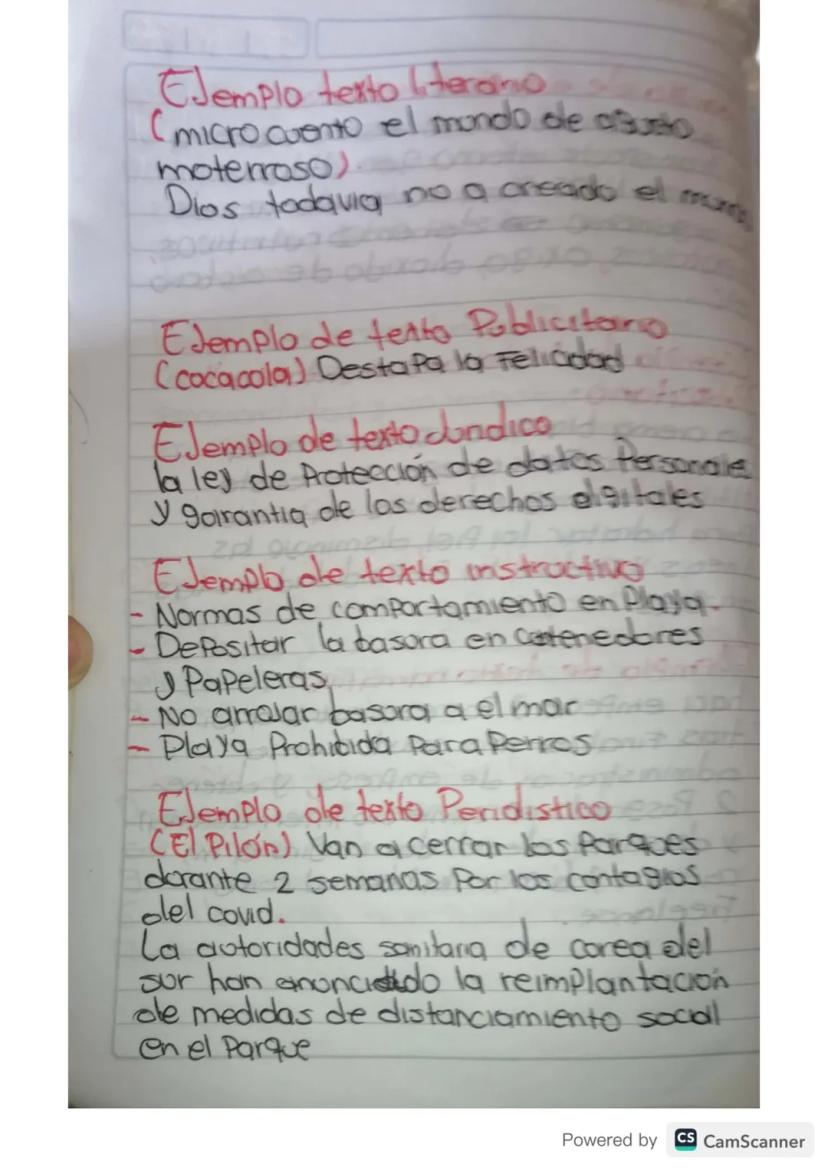 Ejemplo texto literario
(micro cuento el mundo de agusto
moterroso)
Dios todavia no a creado el mundo
Ejemplo de texto Publicitario
(cocacola) Destapa la Felicidad
Ejemplo de texto Juridico
la ley de Protección de datos Personale
y garantia de los derechos digitales
Ejemplo de texto instructivo
- Normas de comportamiento en Playa.
- Depositar la basura en contenedores
y Papeleras
- No arrojar basura a el mar
- Playa Prohibida Para Perros
Ejemplo de texto Peridistico
(El Pilón) Van a cerrar los Parques
durante 2 semanas Por los contagios
del covid.
La autoridades sanitaria de corea del
sur han anunciado la reimplantación
de medidas de distanciamiento social
en el Parque
Powered by CS CamScanner